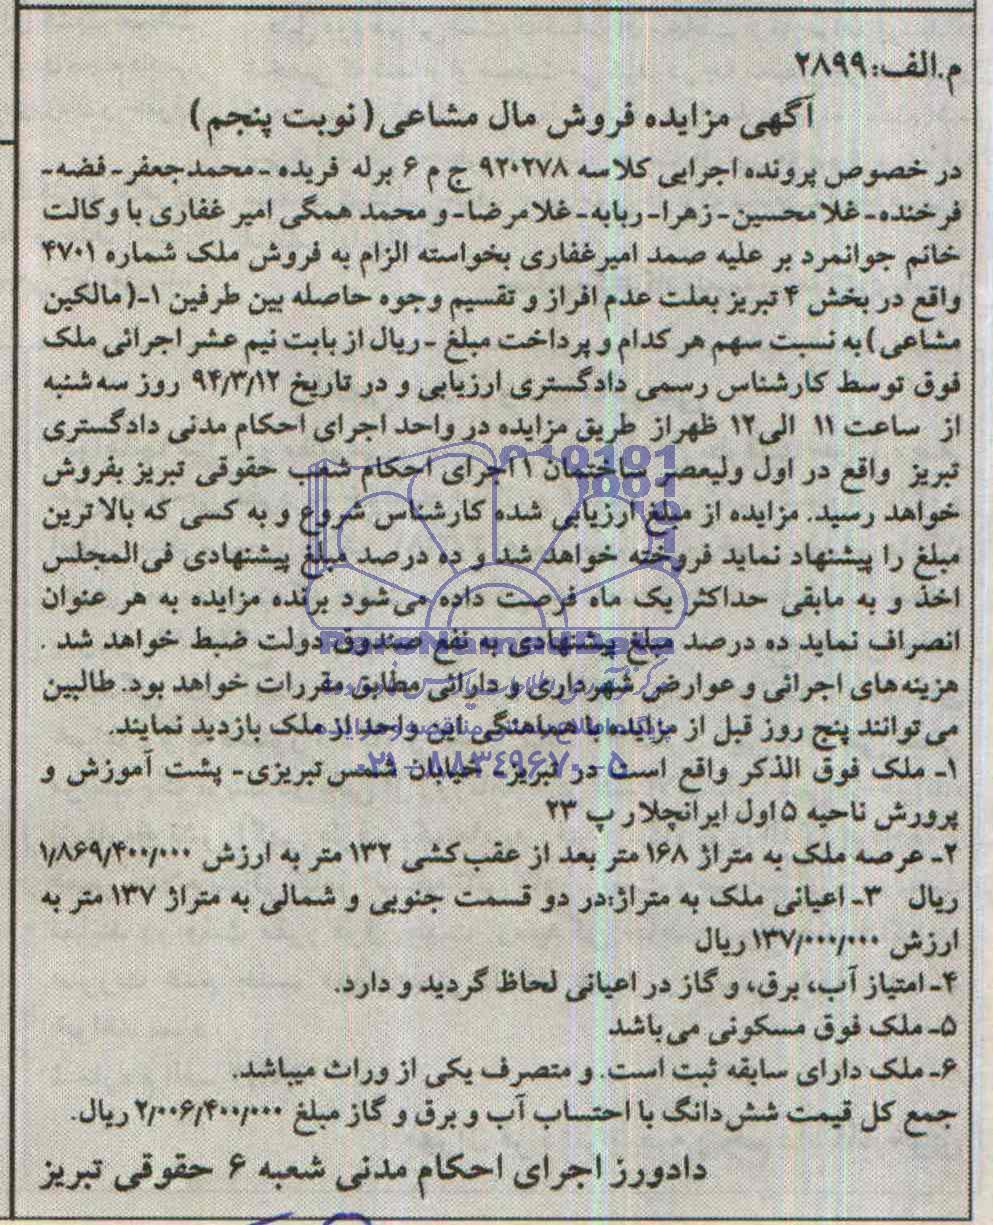 م.الف: ۲۸۹۹
آگهی مزایده فروش مال مشاعی (نوبت پنجم)
در خصوص پرونده اجرایی کلاسه ۹۲۰۲۷۸ ج م ۶ برله فریده - محمدجعفر - فضه -
فرخنده - غلامحسین - زهرا - ربابه - غلامرضا - و محمد همگی امیر غفاری با وکالت
خانم جوانمرد بر علیه صمد امیرغفاری بخواسته الزام به فروش ملک شماره ۴۷۰۱
واقع در بخش ۴ تبریز بعلت عدم افراز و تقسیم وجوه حاصله بین طرفین ۱-(مالکین
مشاعی) به نسبت سهم هر کدام و پرداخت مبلغ - ریال از بابت نیم عشر اجرائی ملک
فوق توسط کارشناس رسمی دادگستری ارزیابی و در تاریخ ۹۴/۳/۱۲ روز سه شنبه
از ساعت ۱۱ الی ۱۲ ظهراز طریق مزایده در واحد اجرای احکام مدنی دادگستری
تبریز واقع در اول ولیعصر ساختمان ۱ اجرای احکام شعب حقوقی تبریز بفروش
خواهد رسید. مزایده از مبلغ ارزیابی شده کارشناس شروع و به کسی که بالاترین
مبلغ را پیشنهاد نماید فروخته خواهد شد و ده درصد مبلغ پیشنهادی فی‌المجلس
اخذ و به مابقی حداکثر یک ماه فرصت داده می‌شود برنده مزایده به هر عنوان
انصراف نماید ده درصد مبلغ پیشنهادی به نفع صندوق دولت ضبط خواهد شد .
هزینه‌های اجرائی و عوارض شهرداری و دارائی مطابق مقررات خواهد بود. طالبین
می‌توانند پنج روز قبل از مزایده با هماهنگی این واحد از ملک بازدید نمایند.
۰۲۱-۸۸۳۴۹۶۷۰-۵
۱- ملک فوق الذکر واقع است در تبریز - خیابان شمس تبریزی - پشت آموزش و
پرورش ناحیه ۵ اول ایرانچلار پ ۲۳
۲- عرصه ملک به متراژ ۱۶۸ متر بعد از عقب‌کشی ۱۳۲ متر به ارزش ۱/۸۶۹/۴۰۰/۰۰۰
ریال ۳- اعیانی ملک به متراژ:در دو قسمت جنوبی و شمالی به متراژ ۱۳۷ متر به
ارزش ۱۳۷/۰۰۰/۰۰۰ ریال
۴- امتیاز آب، برق، و گاز در اعیانی لحاظ گردید و دارد.
۵- ملک فوق مسکونی می‌باشد
۶- ملک دارای سابقه ثبت است. و متصرف یکی از وراث میباشد.
جمع کل قیمت شش دانگ با احتساب آب و برق و گاز مبلغ ۲/۰۰۶/۴۰۰/۰۰۰ ریال.
دادورز اجرای احکام مدنی شعبه ۶ حقوقی تبریز